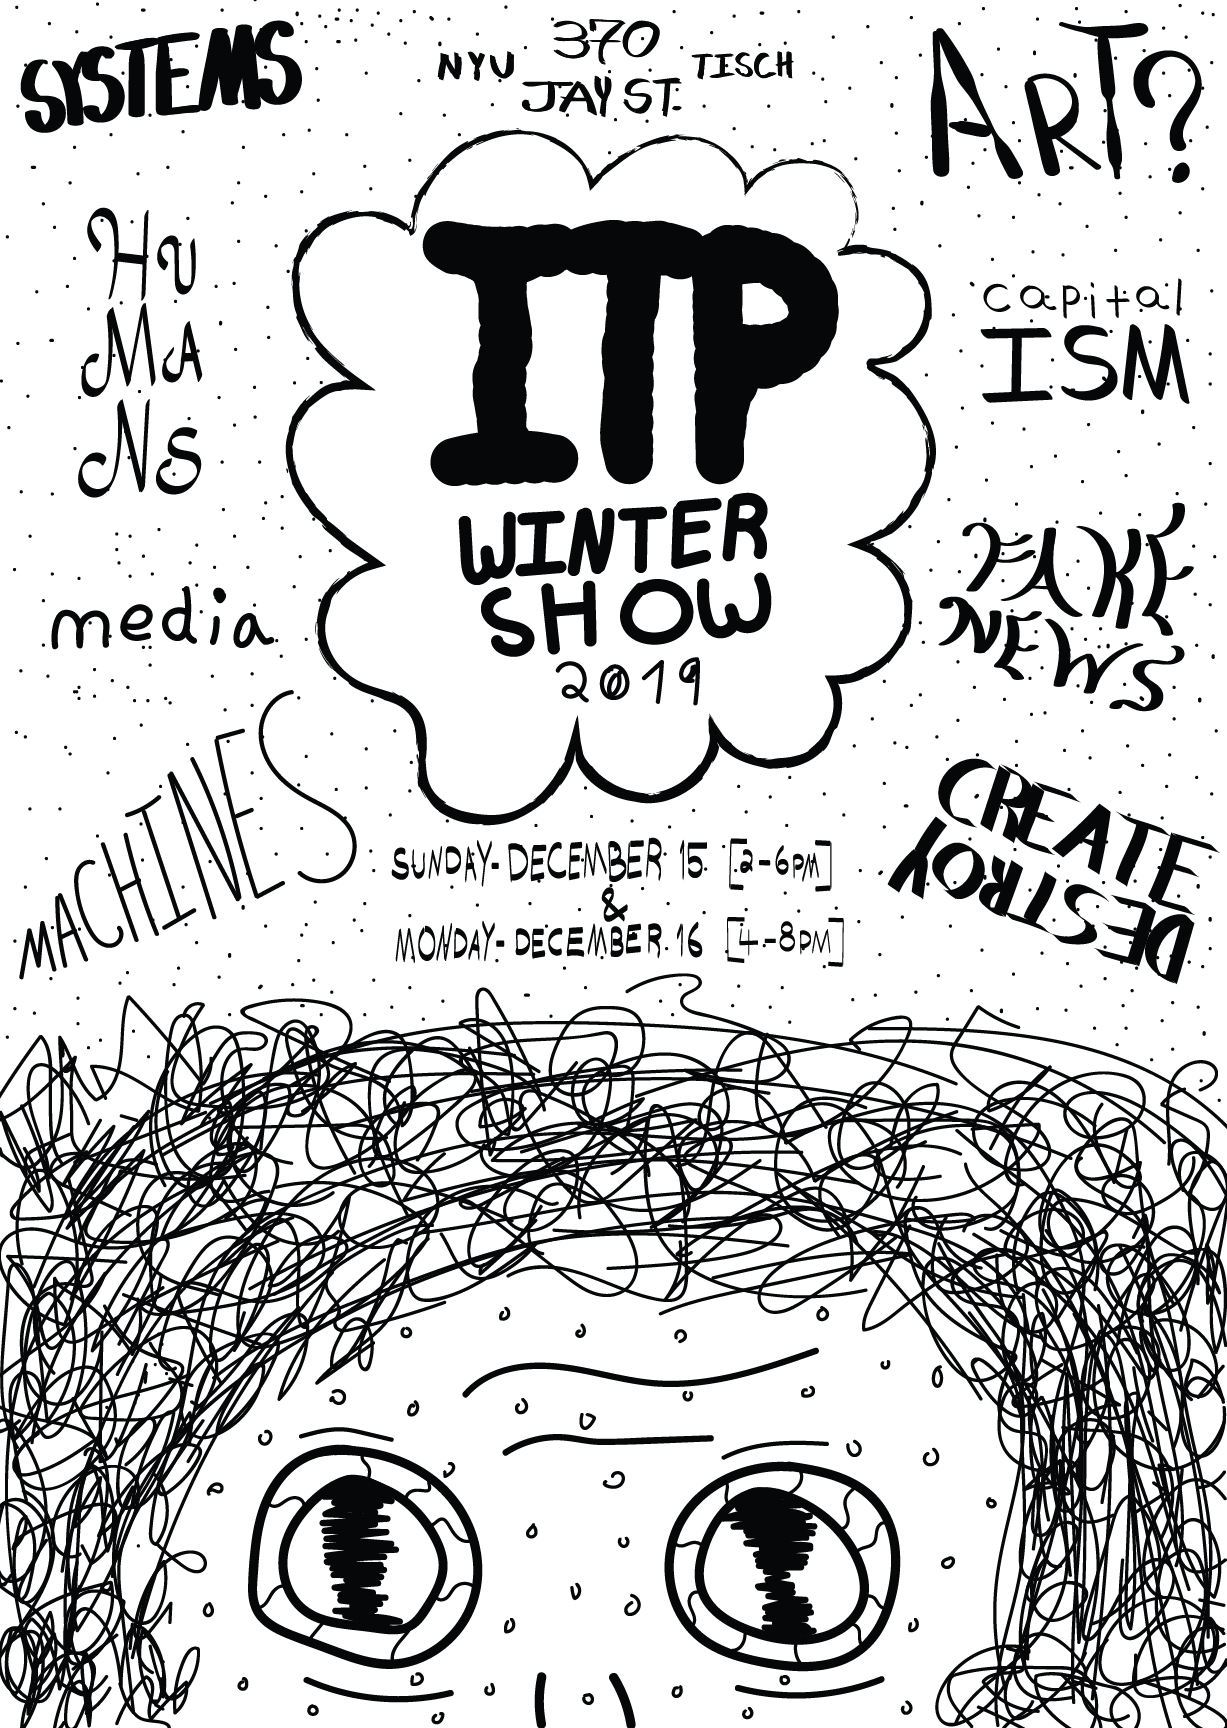 SYSTEMS
NYU
370
JAY ST.
TISCH
ART?
HU
MA
NS
media
MACHINES
ITP
WINTER
SHOW
2019
capital
ISM
FAKE
NEWS
CREATE
DESTROY
SUNDAY- DECEMBER 15 [2-6PM]
&
MONDAY- DECEMBER 16 [4-8PM]